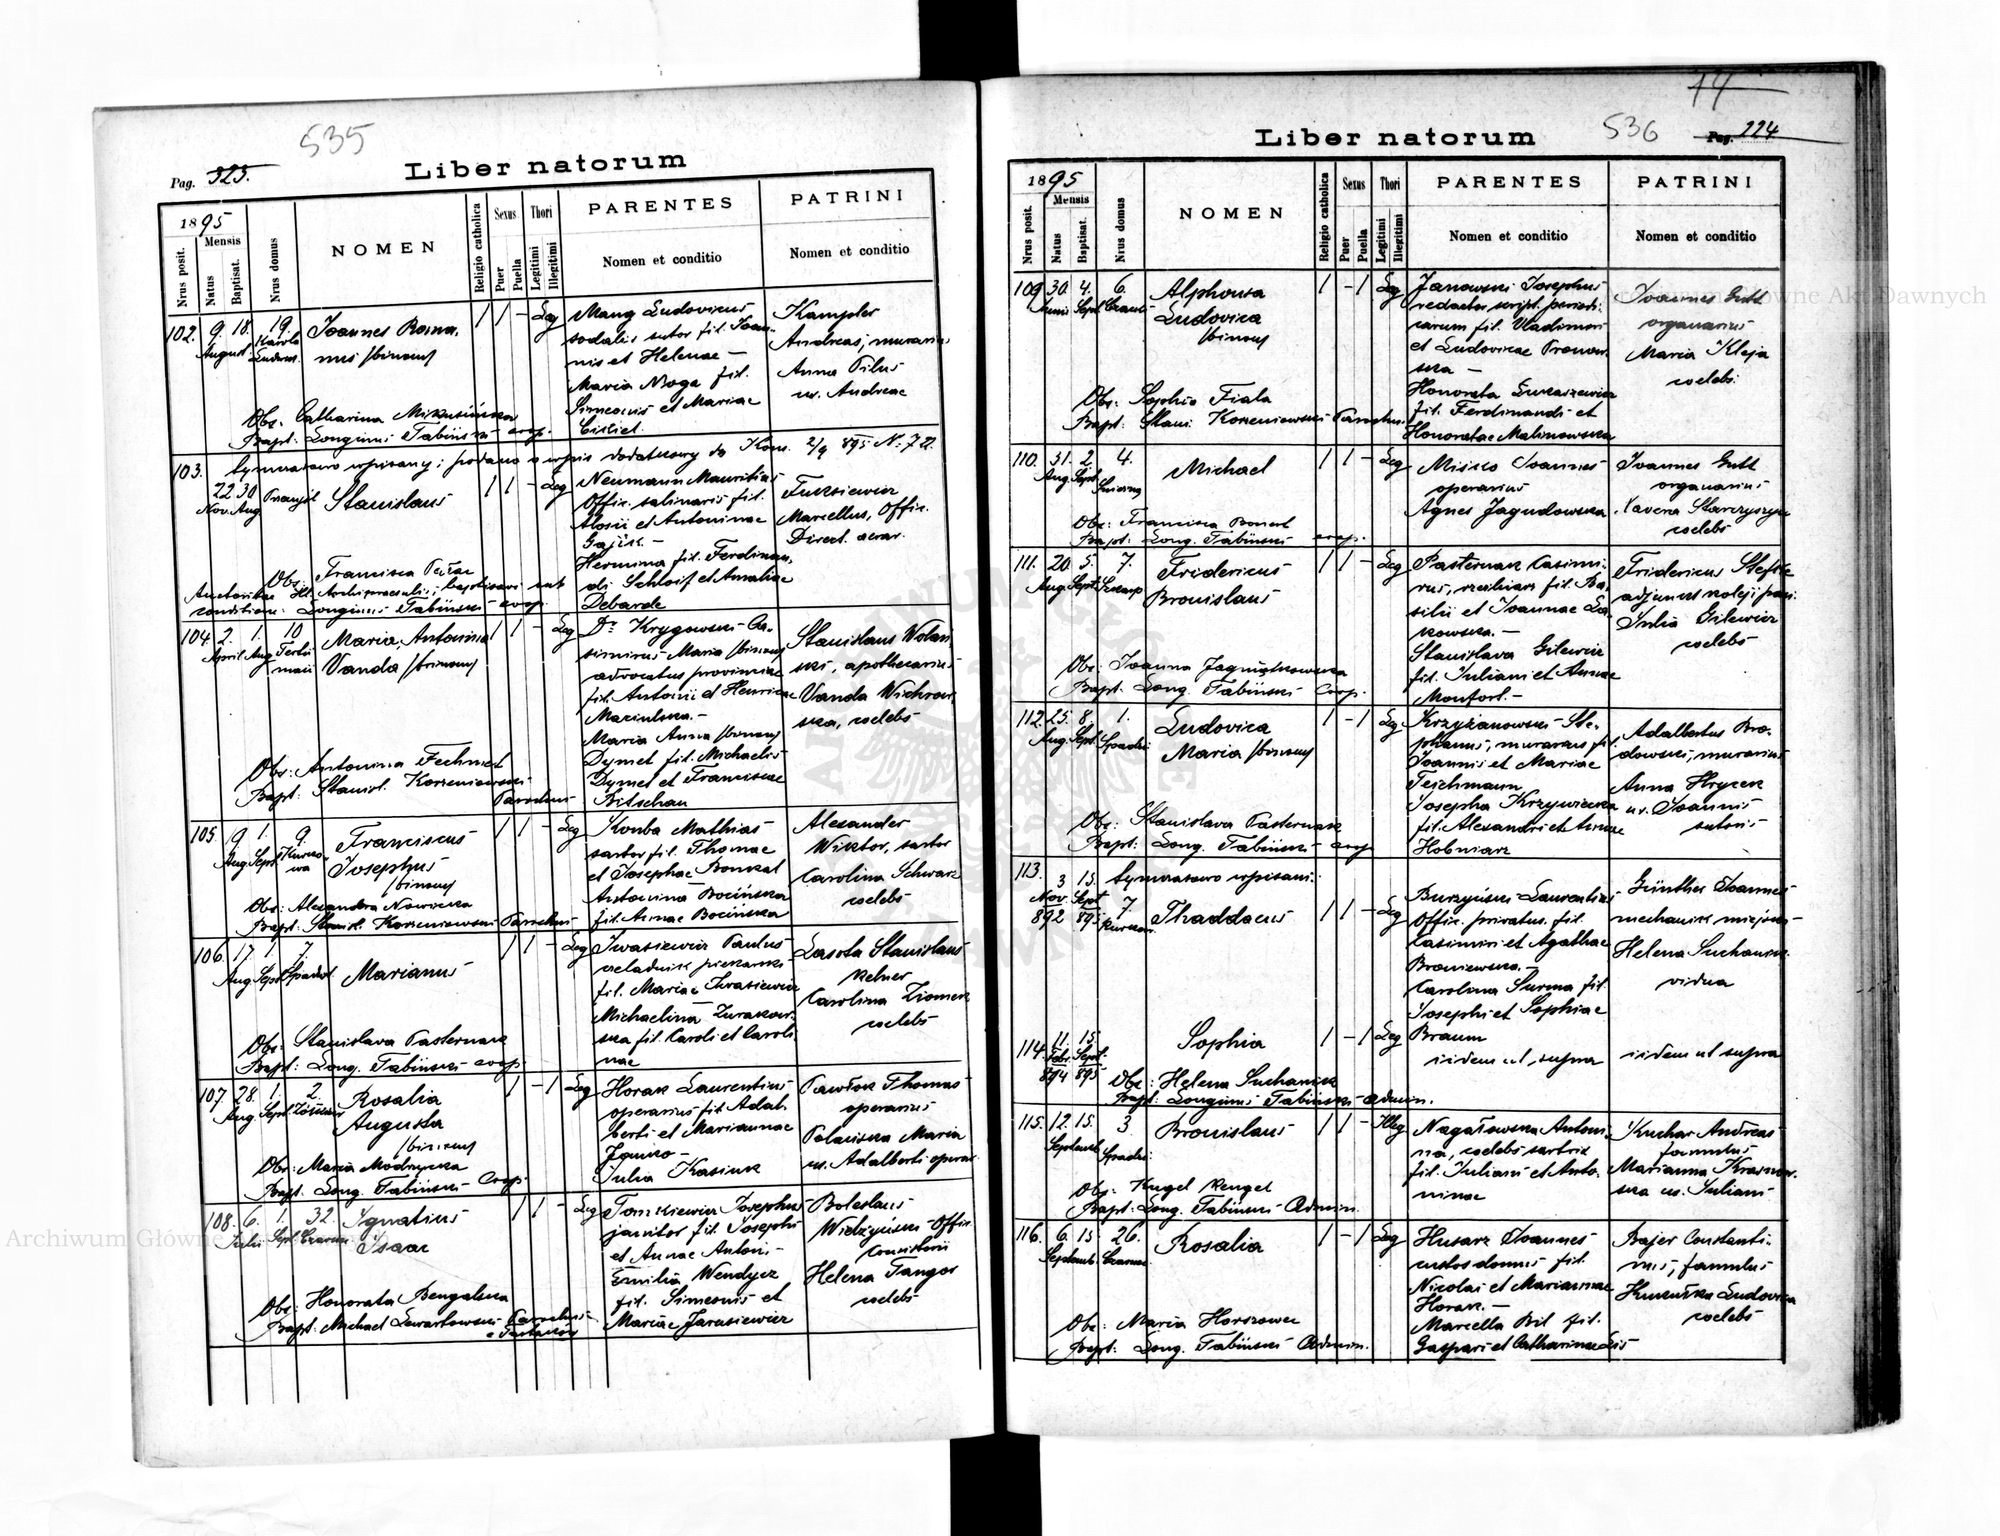 535
Pag. 323.
Liber natorum
1895
Nrus posit.
Mensis
Natus
Baptisat.
Nrus domus
NOMEN
Religio catholica
Sexus
Puer
Puella
Thori
Legitimi
Illegitimi
PARENTES
Nomen et conditio
PATRINI
Nomen et conditio
102. 9. 18. 19.
August. Karola Ludwi.
Joannes
/binom/
1 1 - Leg
Mang Ludovicus
sodalis sutor fil. Joan-
nis et Helenae -
Maria Noga fil.
Simeonis et Mariae
Kampler
Andreas, murarius
Anna Pilus
ux. Andreae
Obs: Catharina
Bapt: Longinus Tabiński coop.
103. tymczasowo wpisany; podano o wpis dodatkowy do Kons. 2/9 895 N: 722.
22. 30
Nov. Aug
Stanislaus
1 1 - Leg
Neumann Mauritius
Offic. salinaris fil.
Aloisii et Antoninae
Hermina fil. Ferdinan-
di Schloif et Amaliae
Debarde
Marcellus, Offic.
Direct. aerar.
Obs: Francisca
conditione: Longinus Tabiński coop.
104. 2. 1. 10
April Aug Tertii maii
Maria, Antonina
Vanda /trinom/
1 1 - Leg
Dr Krygowski Ca-
simirus Maria /binom/
advocatus provinciae
fil. Antonii et Henricae
Maria Anna /binom/
Dymet fil. Michaelis
Dymet et Franciscae
Bitschan
Stanislaus Wolań-
ski, apothecarius
Vanda Wichrow-
ska, coelebs
Obs: Antonina Fechner
Bapt: Stanisl. Korzeniewski
Parochus
105. 9 1. 9.
Aug Sept Kurko-
wa
Franciscus
Josephus
/binom/
1 1 - Leg
Konba Mathias
sartor fil. Thomae
et Josephae
Antonina Bocińska
fil. Annae Bocińska
Alexander
Wiktor, sartor
Carolina Schwarz
coelebs
Obs: Alexandra Nowicka
Bapt: Stanisl. Korzeniewski Parochus
106. 17. 1 7.
Aug Sept
Marianus
1 1 - Leg
Iwasiewicz Paulus
czeladnik piekarski
fil. Mariae Iwasiewicz
Michaelina Żurakow-
ska fil. Caroli et Caroli-
nae
Lasota Stanislaus
kelner
Carolina Ziomek
coelebs
Obs: Stanislava Pasternak
Bapt: Long. Tabiński coop
107. 28. 1. 2.
Aug. Sept.
Rosalia
Augusta
/binom/
1 - 1 Leg
Horak Laurentius
operarius fil. Adal-
berti et Mariannae
Julia Kasiuk
Pawłok Thomas
operarius
Polańska Maria
ux. Adalberti operar.
Obs: Maria Modrycka
Bapt: Long. Tabiński Coop.
108. 6. 1. 32.
Julii Sept
Ignatius
Isaac
1 1 - Leg
Tomkiewicz Josephus
janitor fil. Josephi
et Annae Antoni-
Emilia Wendycz
fil. Simeonis et
Mariae Jarasiewicz
Boleslaus
Offic.
Consistorii
Helena Tangor
coelebs
Obs: Honorata Bengalska
Bapt: Michael Lewartowski Parochus
14
536
Pag. 224
Liber natorum
1895
Nrus posit.
Mensis
Natus
Baptisat.
Nrus domus
NOMEN
Religio catholica
Sexus
Puer
Puella
Thori
Legitimi
Illegitimi
PARENTES
Nomen et conditio
PATRINI
Nomen et conditio
109 30. 4. 6.
Junii Sept
Alphonsa
Ludovica
/binom/
1 - 1 Leg
Janowski Josephus
redactor script. periodi-
carum fil. Vladimiri
et Ludovicae
Honorata Łukasiewicz
fil. Ferdinandi et
Honoratae Malinowska
Joannes Gutt
organarius
Maria Kleja
coelebs
Obs: Sophia Fiala
Bapt: Stani. Korzeniewski Parochus
110. 31. 2. 4.
Aug. Sept
Michael
1 1 - Leg
Misiko Joannes
operarius
Agnes Jagudowska
Joannes Gutt
organarius
Xavera Starczyszyn
coelebs
Obs: Francisca
Bapt: Long. Tabiński coop.
111. 20. 5. 7.
Aug. Sept
Fridericus
Bronislaus
1 1 - Leg
Pasternak Casimi-
rus, fil. Ba-
silii et Joannae
Stanislava Gilewicz
fil. Juliani et Annae
Monfort.
Fridericus
adjunct kolej pań.
Julia Gilewicz
coelebs
Obs: Joanna Jagmiętkowska
Bapt: Long. Tabiński Coop.
112. 25. 8. 1.
Aug. Sept.
Ludovica
Maria /binom/
1 - 1 Leg
Krzyżanowski Ste-
phanus, murarius fil.
Joannis et Mariae
Teichmann
Josepha Krzywiecka
fil. Alexandri et Annae
Hobniarz
Adalbertus Bro-
dowski, murarius
Anna Hrycek
ux. Joannis
sutoris
Obs: Stanislava Pasternak
Bapt: Long. Tabiński coop
113. 3 15. tymczasowo wpisani.
Nov. Sept
892 895 7.
Thaddaeus
1 1 - Leg
Burzyński Laurentius
Offic. privatus. fil.
Casimiri et Agathae
Broniewska.
Carolina Surma fil.
Josephi et Sophiae
Braum
Günther Joannes
mechanik miejski
Helena Suchanik
vidua
114. 11. 15.
Febr. Sept.
894 895
Sophia
1 - 1 Leg
iidem ut supra
iidem ut supra
Obs: Helena Suchanik
Bapt. Longinus Tabiński Admin.
115. 12. 15. 3.
Septemb.
Bronislaus
1 1 - Illeg
Nagałowska Antoni-
na, coelebs sartrix
fil. Juliani et Anto-
ninae
Kuchar Andreas
famulus
Marianna
ux. Juliani
Obs: Kugel Rengel
Bapt: Long. Tabiński Admin.
116. 6. 15. 26.
Septemb.
Rosalia
1 - 1 Leg
Husarz Joannes
custos domus fil.
Nicolai et Mariannae
Horak.
Marcella Bil fil.
Gaspari et Catharinae Lis
Bajer Constanti-
nus, famulus
Ludovica
coelebs
Obs: Maria Horszower
Bapt: Long. Tabiński Admin.
Archiwum Główne Akt Dawnych